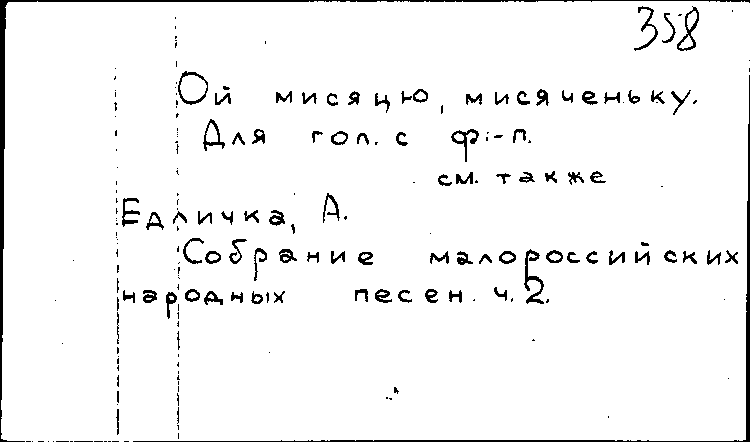 358
Ой мисяцю, мисяченьку.
Для гол. с ф.-п.
см. также
Едличка, А.
Собрание малороссийских
народных песен. ч. 2.